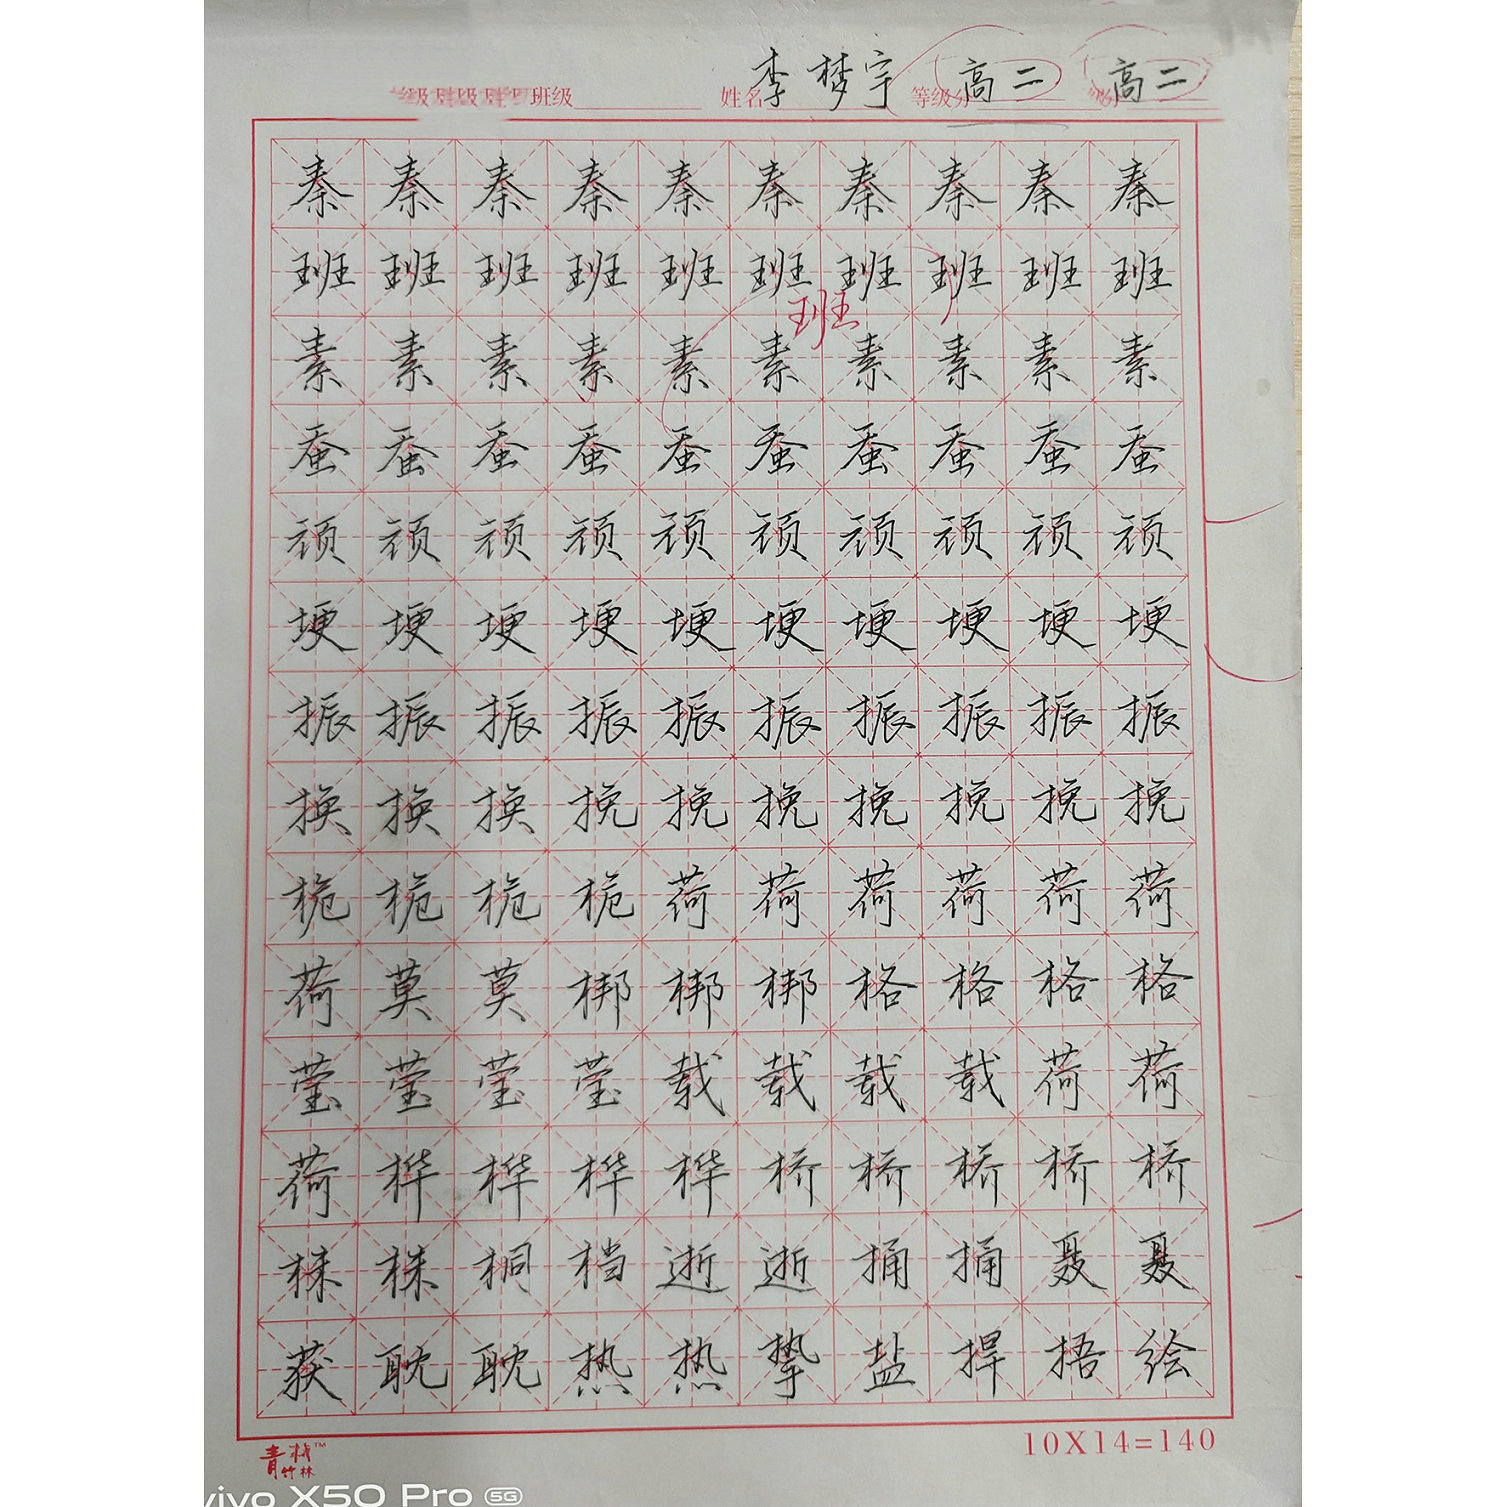 李梦宇 高二 高二
班级 姓名 等级分
秦秦秦秦秦秦秦秦秦秦
班班班班班班班班班班
班
素素素素素素素素素素
蚕蚕蚕蚕蚕蚕蚕蚕蚕蚕
顽顽顽顽顽顽顽顽顽顽
埂埂埂埂埂埂埂埂埂埂
振振振振振振振振振振
换换换挽挽挽挽挽挽挽
桅桅桅桅荷荷荷荷荷荷
荷莫莫梆梆梆格格格格
莹莹莹莹载载载载荷荷
荷桦桦桦桦桥桥桥桥桥
株株桐档逝逝捅捅聂聂
获耽耽热热挚盐捍捂绘
青竹林™
10X14=140
vivo X50 Pro 5G